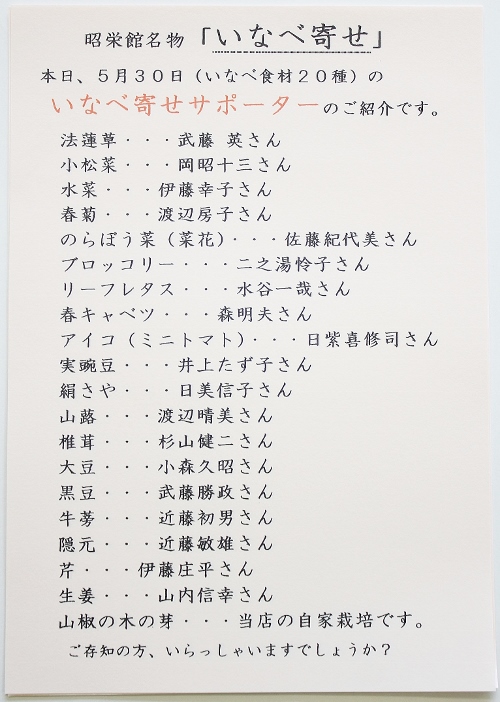 昭栄館名物「いなべ寄せ」
本日、５月３０日（いなべ食材２０種）の
いなべ寄せサポーターのご紹介です。
法蓮草・・・武藤 英さん
小松菜・・・岡昭十三さん
水菜・・・伊藤幸子さん
春菊・・・渡辺房子さん
のらぼう菜（菜花）・・・佐藤紀代美さん
ブロッコリー・・・二之湯怜子さん
リーフレタス・・・水谷一哉さん
春キャベツ・・・森明夫さん
アイコ（ミニトマト）・・・日紫喜修司さん
実豌豆・・・井上たず子さん
絹さや・・・日美信子さん
山蕗・・・渡辺晴美さん
椎茸・・・杉山健二さん
大豆・・・小森久昭さん
黒豆・・・武藤勝政さん
牛蒡・・・近藤初男さん
隠元・・・近藤敏雄さん
芹・・・伊藤庄平さん
生姜・・・山内信幸さん
山椒の木の芽・・・当店の自家栽培です。
ご存知の方、いらっしゃいますでしょうか？